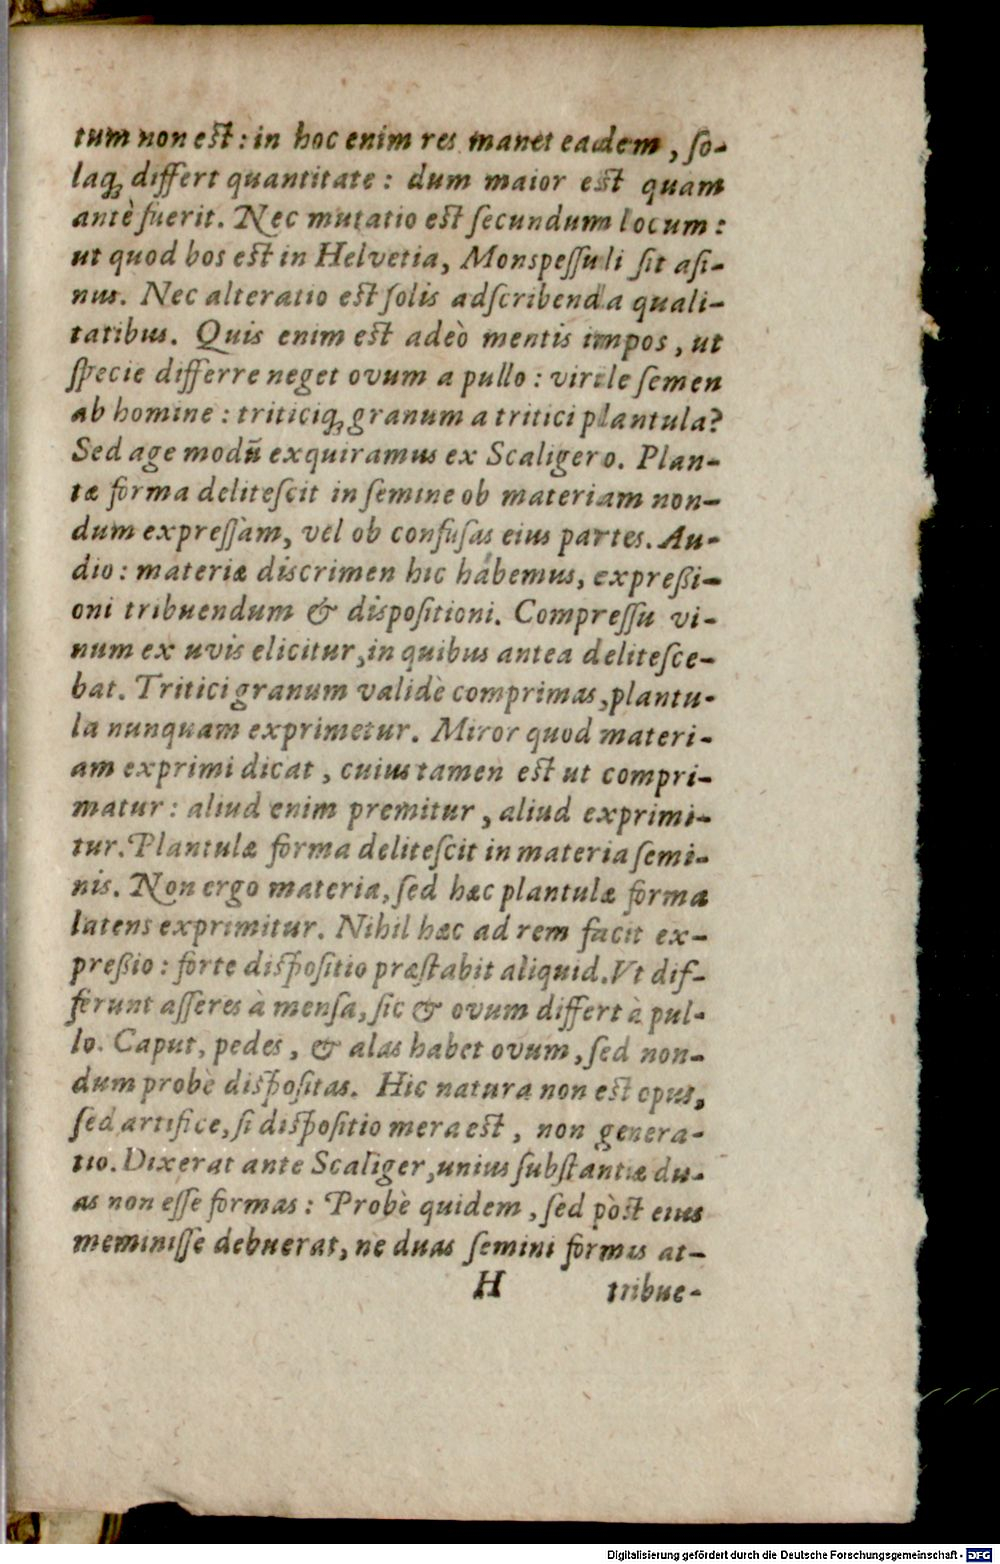 tum non est : in hoc enim res manet eadem , so-
laq́; differt quantitate : dum maior est quam
antè fuerit. Nec mutatio est secundum locum :
ut quod bos est in Helvetia, Monspessuli sit asi-
nus. Nec alteratio est solis adscribenda quali-
tatibus. Quis enim est adeò mentis impos , ut
specie differre neget ovum a pullo : virile semen
ab homine : triticiq́; granum a tritici plantula?
Sed age modū exquiramus ex Scaligero. Plan-
tæ forma delitescit in semine ob materiam non-
dum expressam, vel ob confusas eius partes. Au-
dio : materiæ discrimen hic habemus, expreßi-
oni tribuendum & dispositioni. Compressu vi-
num ex uvis elicitur, in quibus antea delitesce-
bat. Tritici granum validè comprimas, plantu-
la nunquam exprimetur. Miror quod materi-
am exprimi dicat , cuius tamen est ut compri-
matur : aliud enim premitur , aliud exprimi-
tur. Plantulæ forma delitescit in materia semi-
nis. Non ergo materia, sed hæc plantulæ forma
latens exprimitur. Nihil hæc ad rem facit ex-
preßio : forte dispositio præstabit aliquid. Vt dif-
ferunt asseres à mensa, sic & ovum differt à pul-
lo. Caput, pedes , & alas habet ovum , sed non-
dum probè dispositas. Hic natura non est opus,
sed artifice, si dispositio mera est , non genera-
tio. Dixerat ante Scaliger, unius substantiæ du-
as non esse formas : Probè quidem , sed pòst eius
meminisse debuerat, ne duas semini formas at-
H tribue-
Digitalisierung gefördert durch die Deutsche Forschungsgemeinschaft - DFG